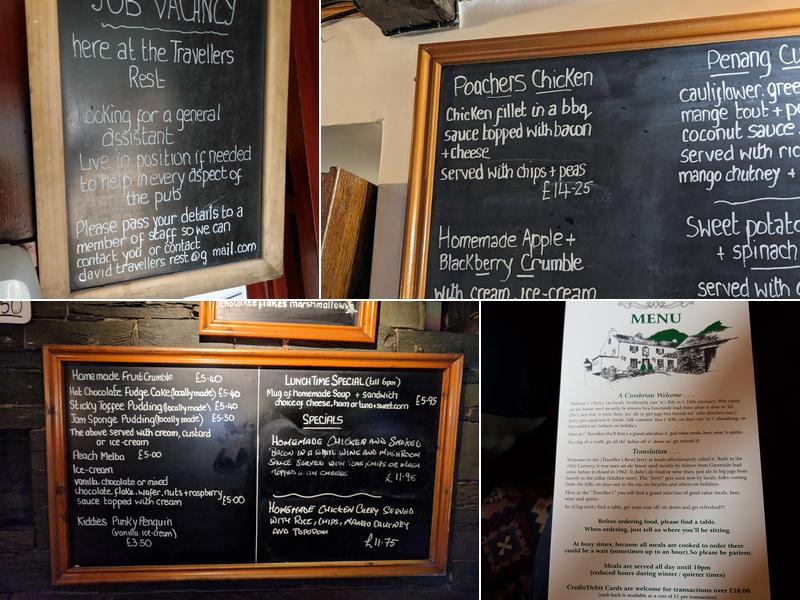 JOB VACANCY
here at the Travellers
Rest
Looking for a general
assistant
Live in position if needed
to help in every aspect of
the pub
Please pass your details to a
member of staff so we can
contact you or contact
david travellers rest@g mail.com
Poachers Chicken
Chicken fillet in a bbq
sauce topped with bacon
+ cheese
served with chips + peas
£14-25
Homemade Apple +
Blackberry Crumble
with cream, ice-cream
Penang Cu
cauliflower, gree
mange tout + pe
coconut sauce
served with ric
mango chutney +
Sweet potato
+ spinach
served with
50
chocolate flakes marshmallows
Homemade Fruit Crumble £5-40
Hot Chocolate Fudge Cake (locally made) £5-40
Sticky Toffee Pudding (locally made) £5-40
Jam Sponge Pudding (locally made) £5-30
The above served with cream, custard
or ice-cream
Peach Melba £5-00
Ice-cream
vanilla, chocolate or mixed
chocolate flake, wafer, nuts + raspberry
sauce topped with cream £5-00
Kiddies Punky Penguin
(vanilla ice-cream)
£3 50
LUNCHTIME SPECIAL (till 6pm)
Mug of homemade Soup + sandwich
choice of cheese, ham or tuna + sweetcorn £5-95
SPECIALS
HOMEMADE CHICKEN AND SMOKED
BACON IN A WHITE WINE AND MUSHROOM
SAUCE SERVED WITH PEAS, CHIPS OR MASH
TOPPED WITH CHEESE
£11-95
HOMEMADE CHICKEN CURRY SERVED
WITH RICE, CHIPS, MANGO CHUTNEY
AND POPODOM
£11-75
MENU
A Cumbrian Welcome . . .
Translation . . .
Welcome to the (Traveller's Rest) Jerry as locals affectionately called it. Built in the
18th Century it was once an ale house used mostly by miners from Greenside lead
mine before it closed in 1962. It didn't do food or wine then, just ale in big jugs from
barrels in the cellar (kitchen now). The "Jerry" gets used now by locals, folks coming
from the fells, on days out in the car, on bicycles and others on holidays.
Here at the "Traveller's" you will find a grand selection of good value meals, beer,
wine and spirits.
So (Clag+sick) find a table, get your coat off, sit down and get refreshed!!!
Before ordering food, please find a table.
When ordering, just tell us where you'll be sitting.
At busy times, because all meals are cooked to order there
could be a wait (sometimes up to an hour). So please be patient.
Meals are served all day until 10pm
(reduced hours during winter / quieter times)
Credit/Debit Cards are welcome for transactions over £10.00
(cash back is available at a cost of £1 per transaction)